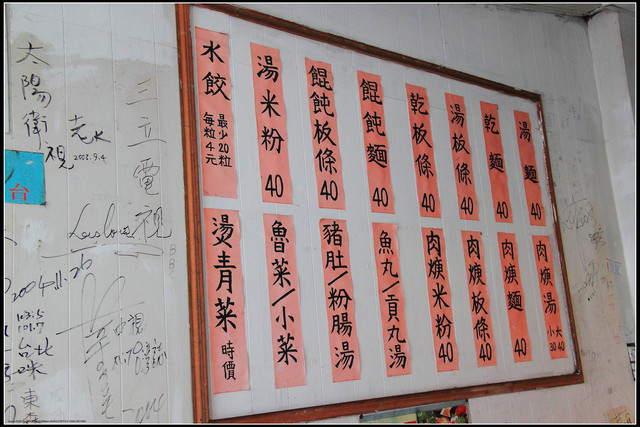 湯麵 40
乾麵 40
湯板條 40
乾板條 40
餛飩麵 40
餛飩板條 40
湯米粉 40
水餃 最少20粒 每粒4元
肉焿湯 大40 小30
肉焿麵 40
肉焿板條 40
肉焿米粉 40
魚丸/貢丸湯
豬肚/粉腸湯
魯菜/小菜
燙青菜 時價
三立電視
太陽衛視
老水
2003.9.4
台
2004.11.26
中視
台北